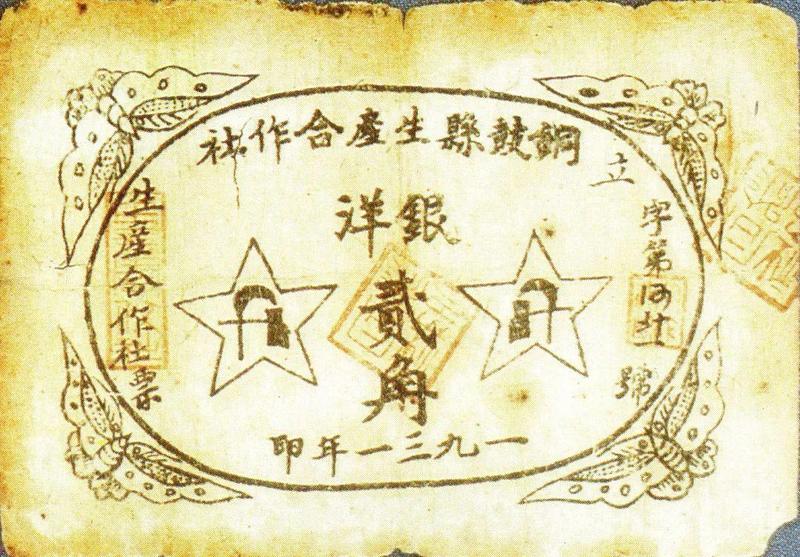 銅鼓縣生產合作社
銀洋
貳角
一九三一年印
立
字第
號
生產合作社票